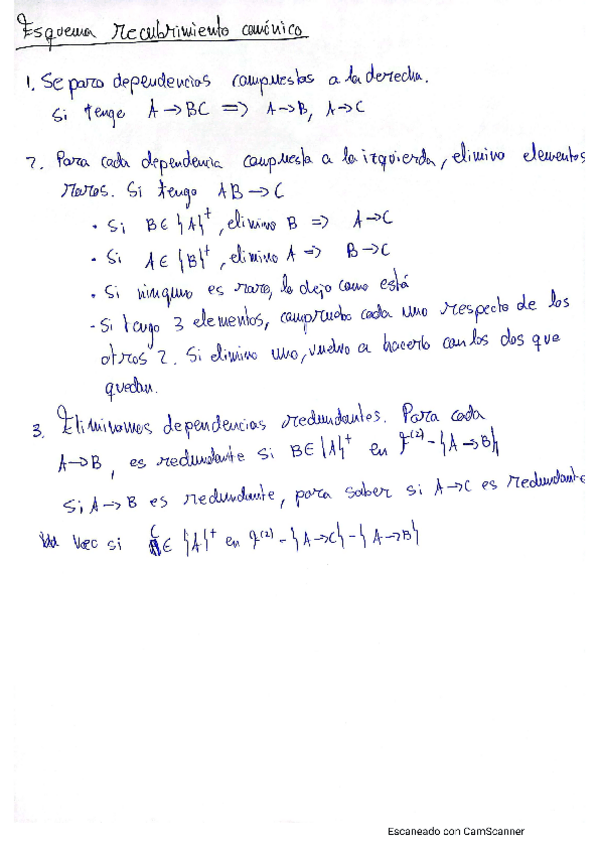 Esquema recubrimiento canónico
1. Separo dependencias compuestas a la derecha.
Si tengo A → BC => A→B, A→C
2. Para cada dependencia compuesta a la izquierda, elimino elementos
raros. Si tengo AB → C
• Si B ∈ {A}⁺, elimino B => A→C
• Si A ∈ {B}⁺, elimino A => B→C
• Si ninguno es raro, lo dejo como está
- Si tengo 3 elementos, compruebo cada uno respecto de los
otros 2. Si elimino uno, vuelvo a hacerlo con los dos que
quedan.
3. Eliminamos dependencias redundantes. Para cada
A→B, es redundante si B∈{A}⁺ en F⁽²⁾-{A→B}
Si A→B es redundante, para saber si A→C es redundante
veo si C ∈ {A}⁺ en F⁽²⁾-{A→C}-{A→B}
Escaneado con CamScanner